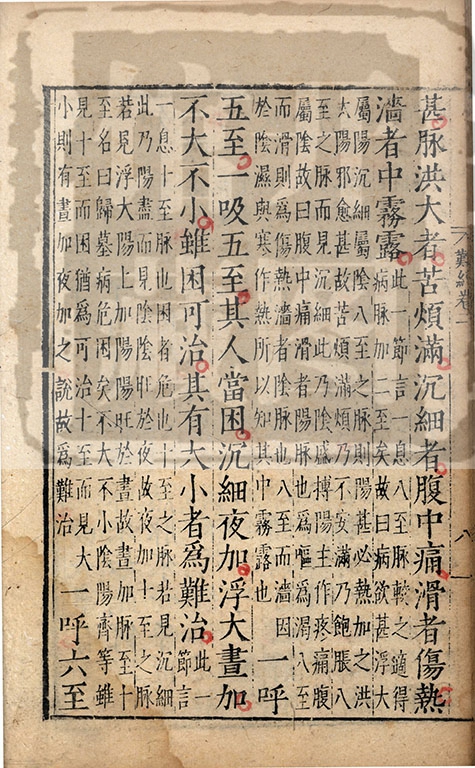 難經卷一
八
甚脉洪大者苦煩滿沉細者腹中痛滑者傷熱
濇者中霧露
此一節言一息八至脉較之適得
病脉加二至矣故曰病欲甚浮大
屬陽沉細屬陰八至之脉則陽甚必熱加之洪
太陽邪愈甚故苦煩滿煩乃不安滿乃飽脹八
至之脉而見沉細此乃陰盛搏陽主作疼痛腹
屬陰故曰腹中痛滑者陽脉也為嘔為渴八至
而滑則為傷熱濇者陰脉也八至而濇因
於陰濕與寒作熱所以知其中霧露也
一呼
五至一吸五至其人當困沉細夜加浮大晝加
不大不小雖困可治其有大小者爲難治
此一
節言
一息十至脉也困者危也十至之脉若見沉細
此乃陽盡而見陰陰旺於夜故夜加十至之脉
若見浮大陽上加陽陽旺於晝故晝加脉至十
至名曰歸墓病危困矣不大不小陰陽齊等雖
見十至而困猶爲可治十至而見大
小則有晝加夜加之說故爲難治
一呼六至